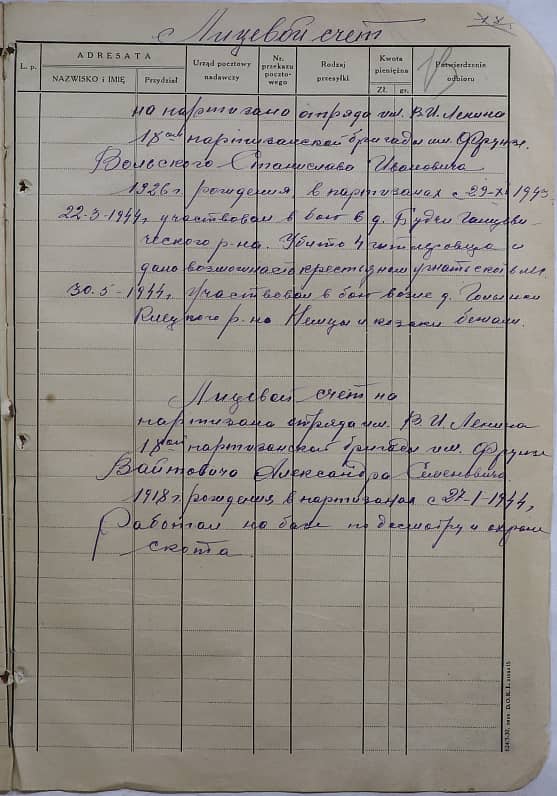 Лицевой счет
L. p.
ADRESATA
NAZWISKO i IMIĘ
Przydział
Urząd pocztowy nadawczy
Nr. przekazu poczto-wego
Rodzaj przesyłki
Kwota pieniężna
Zł. gr.
Potwierdzenie odbioru
на партизана отряда им. В.И. Ленина
18ой партизанской бригады им. Фрунзе
Вольского Станислава Ивановича
1926 г рождения, в партизанах с 29-XI 1943
22-3-1944, участвовал в бою в д. Будчи Ганцеви-
ческого р-на. Убито 4 гитлеровца и
дано возможность крестьянам угнать скот в лес
30-5-1944, Участвовал в бою возле д.
Клецкого р-на Немцы и казаки бежали.
Лицевой счет на
партизана отряда им. В.И. Ленина
18ой партизанской бригады им. Фрунзе
Вайтовича Александра Семеновича
1918 г. рождения, в партизанах с 27-1-1944,
Работал на базе по досмотру и охране
скота.